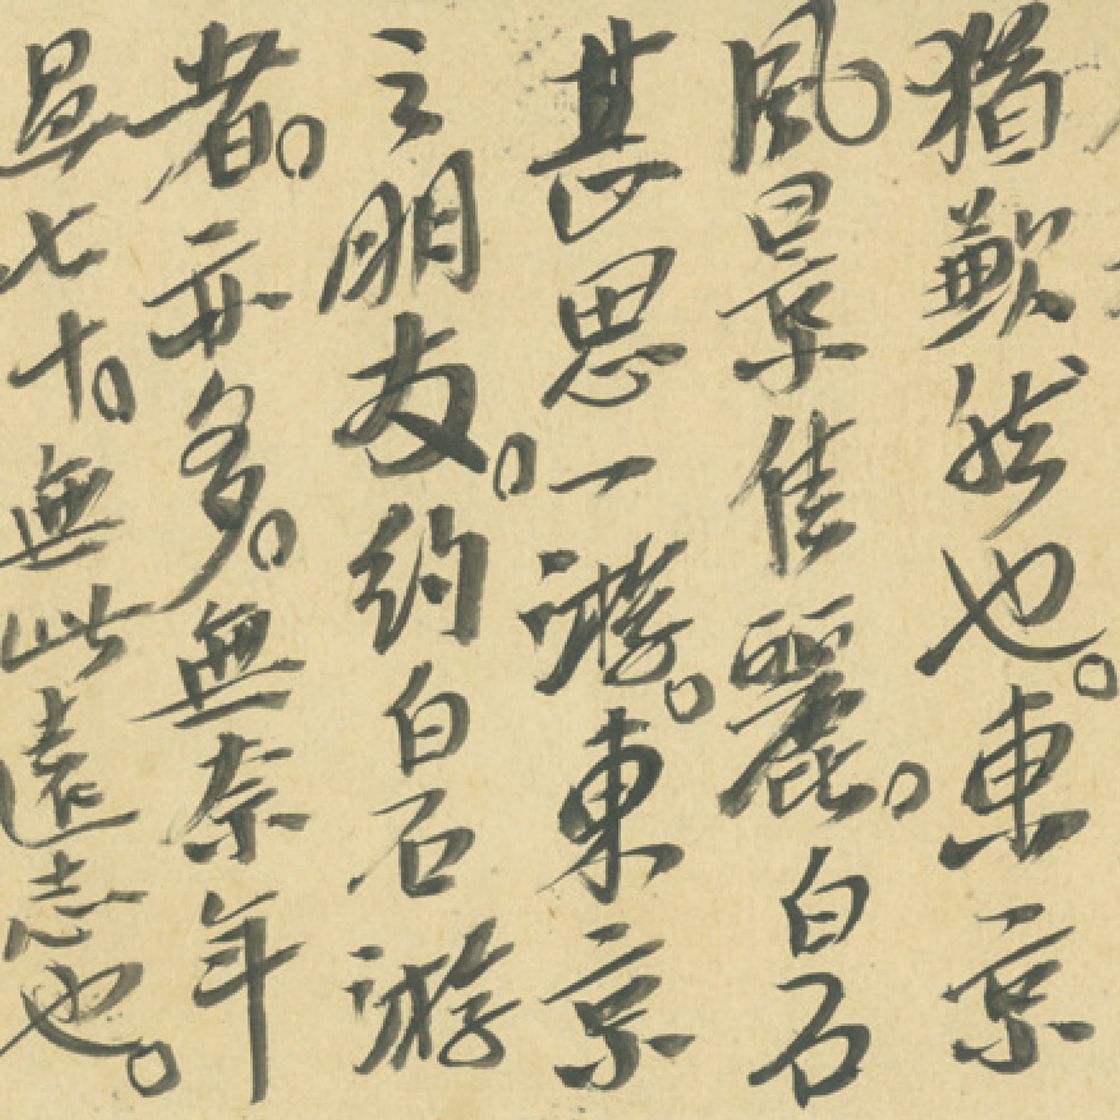 猶歉然也。東京
風景佳麗。白石
甚思一游。東京
之朋友。約白石游
者。亦多。無奈年
過七十。無此遠志也。